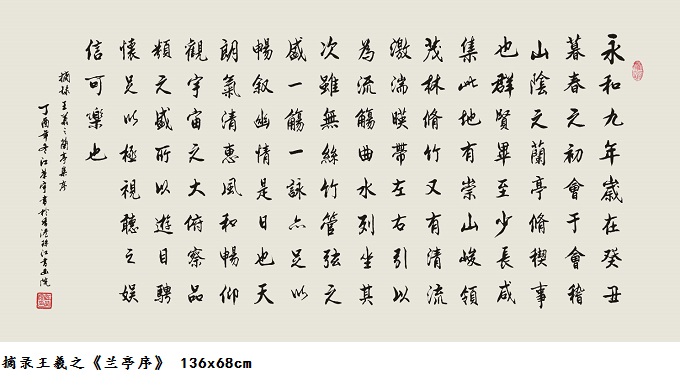 永和九年歲在癸丑
暮春之初會于會稽
山陰之蘭亭脩禊事
也群賢畢至少長咸
集此地有崇山峻領
茂林脩竹又有清流
激湍暎帶左右引以
為流觴曲水列坐其
次雖無絲竹管弦之
盛一觴一詠亦足以
暢叙幽情是日也天
朗氣清惠風和暢仰
觀宇宙之大俯察品
類之盛所以遊目騁
懷足以極視聽之娱
信可樂也
摘録王羲之蘭亭集序
丁酉年冬江書於江書画院
摘录王羲之《兰亭序》 136x68cm